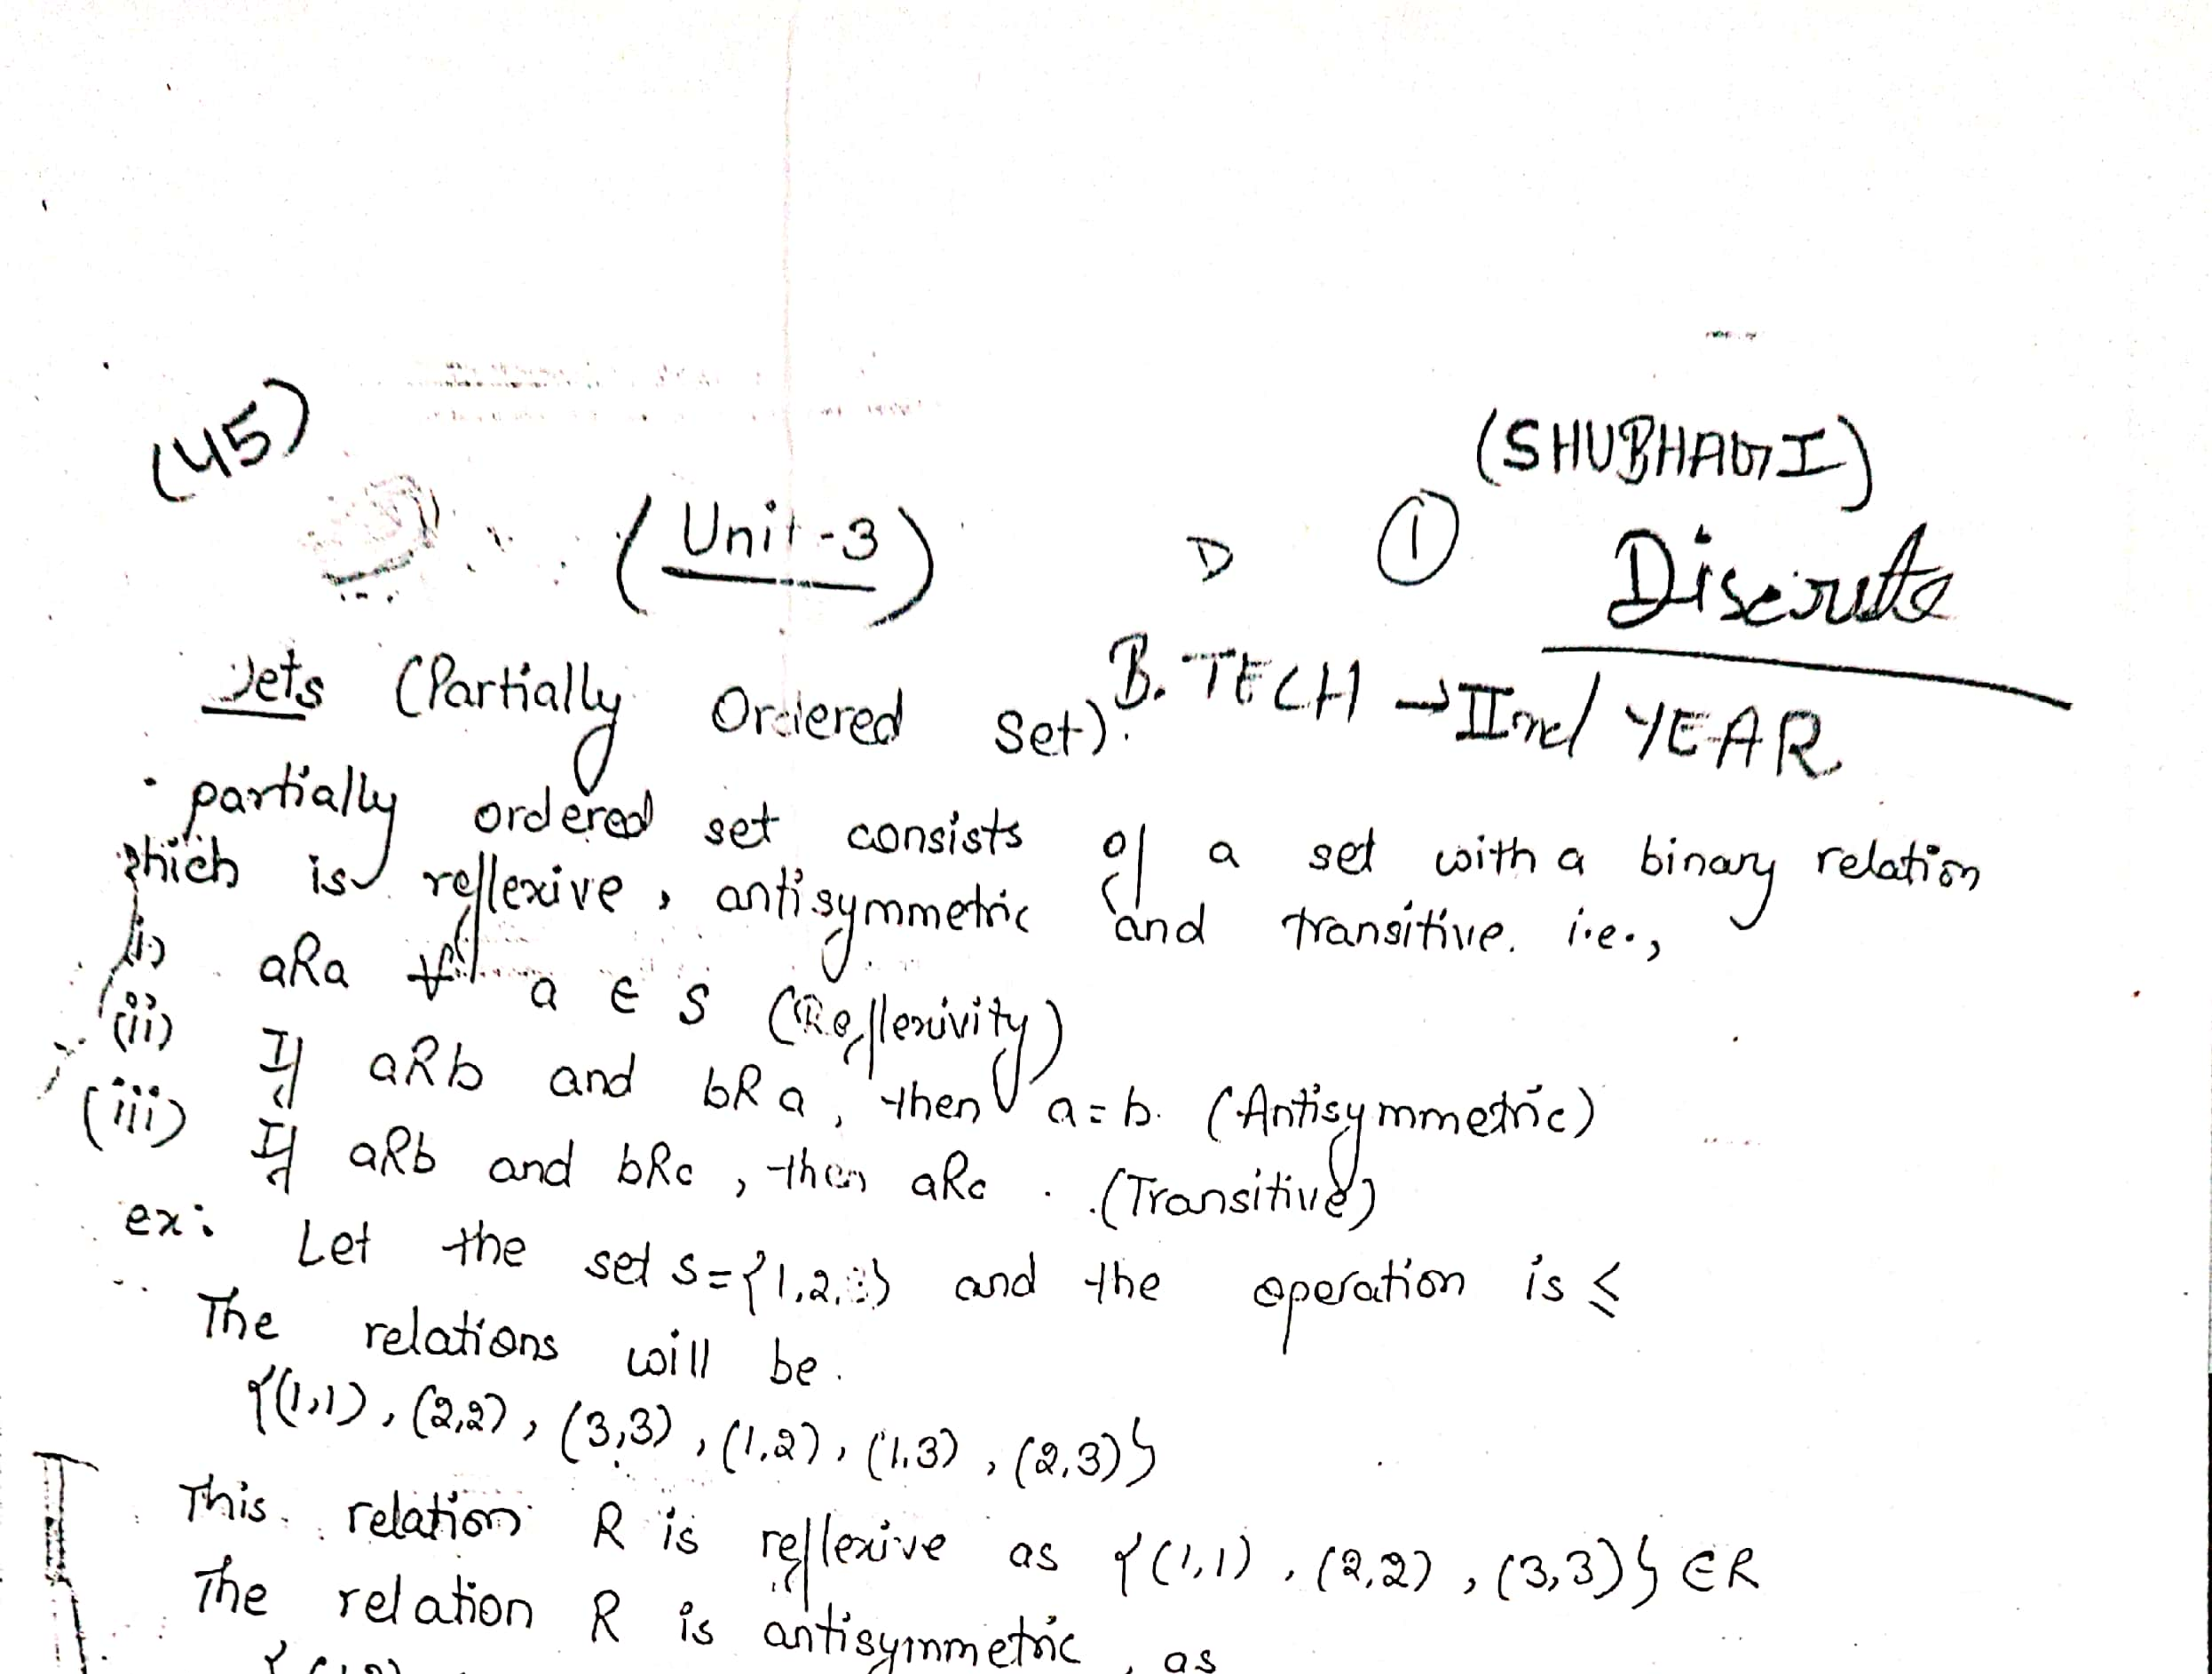 (45)
(SHUBHAGI)
(Unit-3)
D
①
Discrete
B. TECH → IInd YEAR
sets (Partially Ordered Set).
partially ordered set consists of a set with a binary relation
which is reflexive, antisymmetric and transitive. i.e.,
(i) aRa ∀ a ∈ S (Reflexivity)
(ii) If aRb and bRa, then a=b. (Antisymmetric)
(iii) If aRb and bRc, then aRc. (Transitive)
ex: Let the set S={1,2,3} and the operation is ≤
The relations will be.
{(1,1), (2,2), (3,3), (1,2), (1,3), (2,3)}
This relation R is reflexive as {(1,1), (2,2), (3,3)} ∈R
The relation R is antisymmetric, as